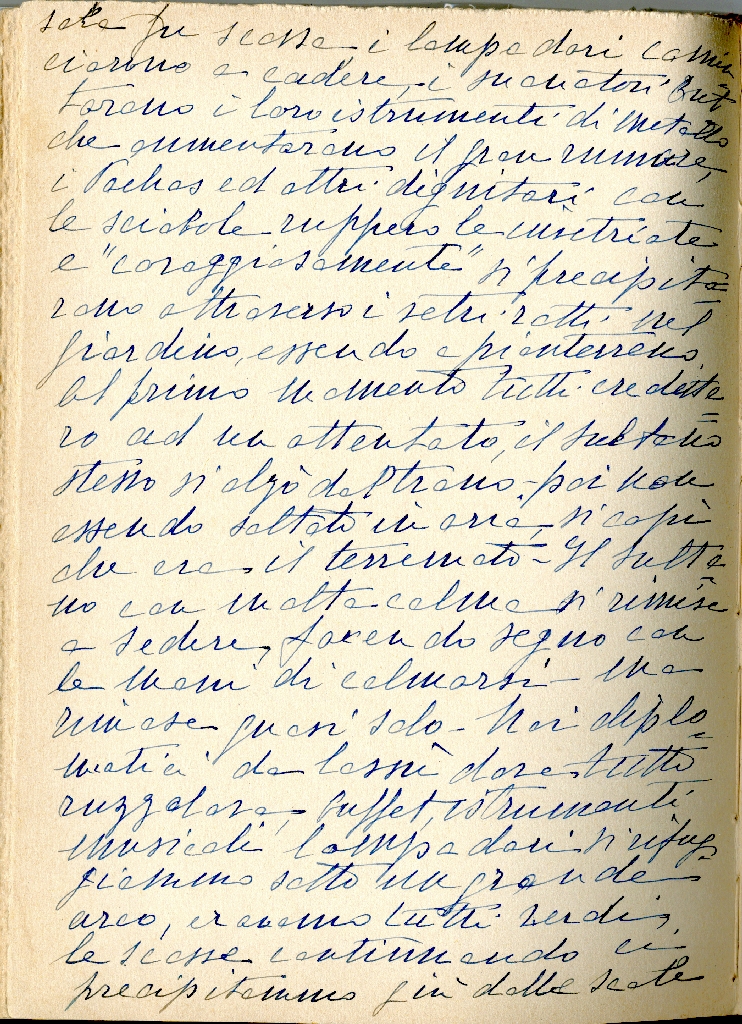 sala fu scossa, i lampadari comin
ciarono a cadere, i suonatori but
tarono i loro istrumenti di metallo
che aumentarono il gran rumore,
i Pachas ed altri dignitari con
le sciabole ruppero le invetriate
e "coraggiosamente" si precipita=
rono attraverso i vetri rotti nel
giardino, essendo a pianterreno
Al primo momento tutti credette=
ro ad un attentato, il sultano
stesso si alzò dal trono - poi non
essendo saltato in aria, si capì
che era il terremoto - Il Sulta=
no con molta calma si rimise
a sedere, facendo segno con
le mani di calmarsi - ma
rimase quasi solo - Noi diplo=
matici da lassù dove tutto
ruzzolava, buffet, istrumenti
musicali lampadari si rifug=
giammo sotto un grande
arco, eravamo tutti verdi,
le scosse continuando ci
precipitammo giù dalle scale